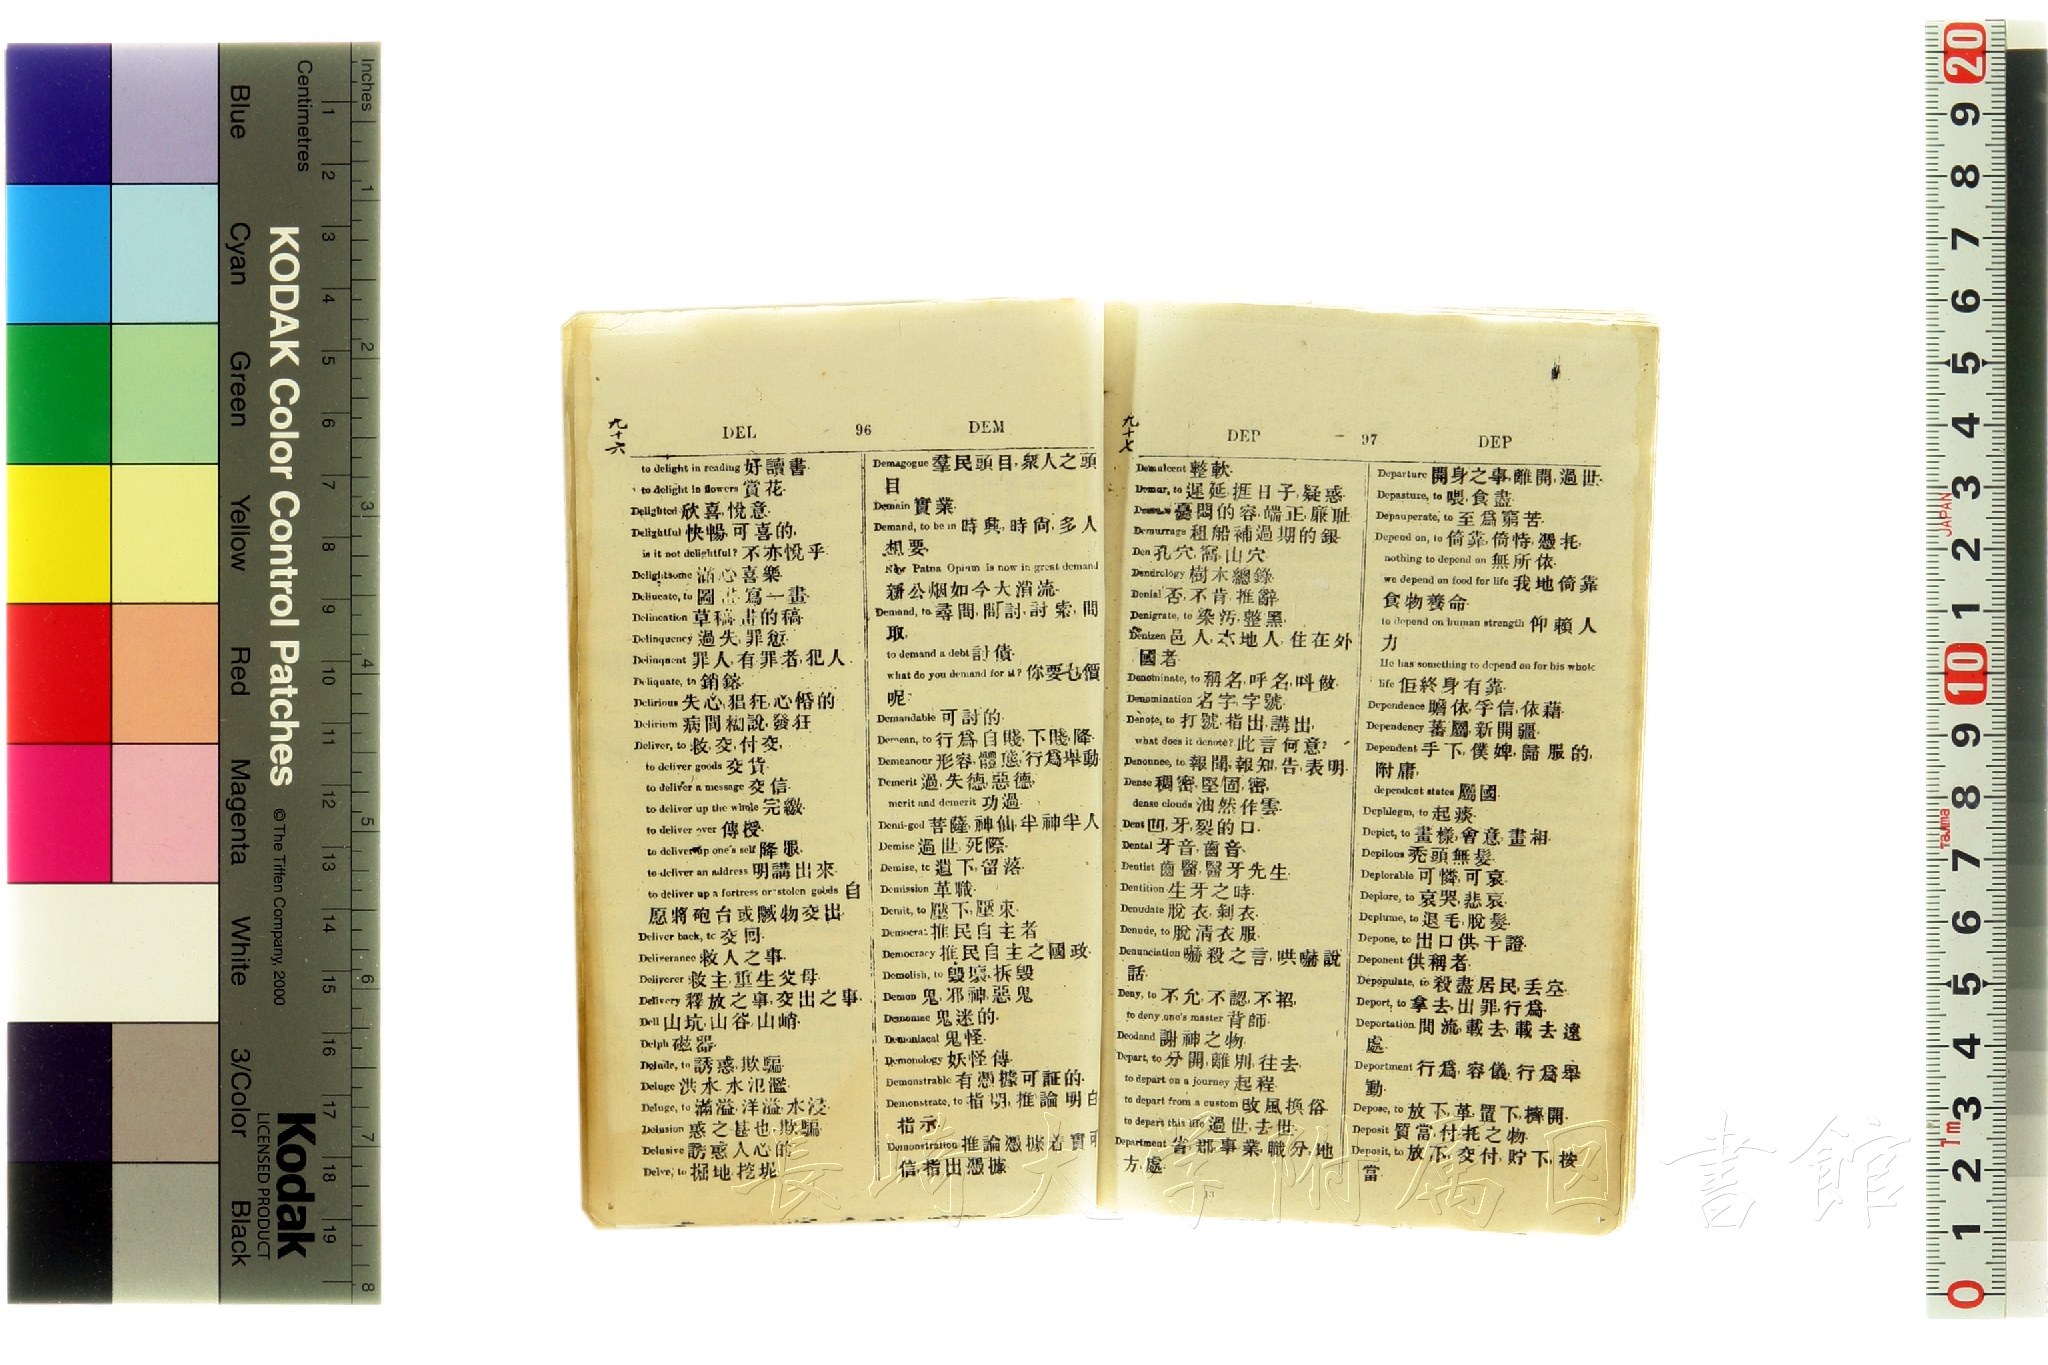 Blue
Cyan
Green
Yellow
Red
Magenta
White
3/Color
Black
Centimetres
Inches
KODAK Color Control Patches
© The Tiffen Company, 2000
Kodak
LICENSED PRODUCT
九十六
DEL 96 DEM
to delight in reading 好讀書
to delight in flowers 賞花
Delighted 欣喜,悅意
Delightful 快暢,可喜的,
is it not delightful? 不亦悅乎
Delightsome 滿心喜樂
Delineate, to 圖畫,寫一畫
Delineation 草稿,畫的稿
Delinquency 過失,罪愆
Delinquent 罪人,有罪者,犯人
Deliquate, to 銷鎔
Delirious 失心,猖狂,心惛的
Delirium 病間 說,發狂
Deliver, to 救,交,付交,
to deliver goods 交貨
to deliver a message 交信
to deliver up the whole 完繳
to deliver over 傳授
to deliver up one's self 降服
to deliver an address 明講出來
to deliver up a fortress or stolen goods 自
愿將砲台或贓物交出
Deliver back, to 交囘
Deliverance 救人之事
Deliverer 救主,重生父母
Delivery 釋放之事,交出之事
Dell 山坑,山谷,山峭
Delph 磁器
Delude, to 誘惑,欺騙
Deluge 洪水,水氾濫
Deluge, to 滿溢,洋溢,水浸
Delusion 惑之甚也,欺騙
Delusive 誘惑人心的
Delve, to 掘地,挖坭
Demagogue 羣民頭目,衆人之頭
目
Demain 實業
Demand, to be in 時興,時尙,多人
想要
New Patna Opium is now in great demand
新公烟如今大消流
Demand, to 尋問,問討,討索,問
取
to demand a debt 討債
what do you demand for it? 你要乜價
呢
Demandable 可討的
Demean, to 行爲,自賤,下賤,降
Demeanour 形容,體態,行爲舉動
Demerit 過,失德,惡德
merit and demerit 功過
Demi-god 菩薩,神仙,半神半人
Demise 過世,死際
Demise, to 遺下,留落
Demission 革職
Demit, to 壓下,壓束
Democrat 推民自主者
Democracy 推民自主之國政
Demolish, to 毀壞,拆毀
Demon 鬼,邪神,惡鬼
Demoniac 鬼迷的
Demoniacal 鬼怪
Demonology 妖怪傳
Demonstrable 有憑據可証的
Demonstrate, to 指明,推論明白
指示
Demonstration 推論憑據着實可
信,指出憑據
九十七
DEP 97 DEP
Demulcent 整軟
Demur, to 遲延,捱日子,疑惑
憂悶的容,端正,廉耻
Demurrage 租船補過期的銀
Den 孔穴,窩,山穴
Dendrology 樹木總錄
Denial 否,不肯,推辭
Denigrate, to 染汚,整黑
Denizen 邑人,本地人,住在外
國者
Denominate, to 稱名,呼名,呌做
Denomination 名字,字號
Denote, to 打號,指出,講出,
what does it denote? 此言何意?
Denounce, to 報聞,報知,告,表明
Dense 稠密,堅固,密,
dense clouds 油然作雲
Dent 凹,牙,裂的口
Dental 牙音,齒音
Dentist 齒醫,醫牙先生
Dentition 生牙之時
Denudate 脫衣,剝衣
Denude, to 脫清衣服
Denunciation 嚇殺之言,哄嚇說
話
Deny, to 不允,不認,不招,
to deny one's master 背師
Deodand 謝神之物
Depart, to 分開,離別,往去
to depart on a journey 起程
to depart from a custom 改風換俗
to depart this life 過世,去世
Department 省,郡,事業,職分,地
方,處
13
Departure 開身之事,離開,過世
Depasture, to 喂,食盡
Depauperate, to 至爲窮苦
Depend on, to 倚靠,倚恃,憑托
nothing to depend on 無所依
we depend on food for life 我地倚靠
食物養命
to depend on human strength 仰賴人
力
He has something to depend on for his whole
life 佢終身有靠
Dependence 依,孚信,依藉
Dependency 蕃屬,新開疆
Dependent 手下,僕婢,歸服的,
附庸,
dependent states 屬國
Dephlegm, to 起痰
Depict, to 畫樣,會意,畫相
Depilous 禿頭無髮
Deplorable 可憐,可哀
Deplore, to 哀哭,悲哀
Deplume, to 退毛,脫髮
Depone, to 出口供,干證
Deponent 供稱者
Depopulate, to 殺盡居民,丟空
Deport, to 拿去,出罪,行爲
Deportation 問流,載去,載去遠
處
Deportment 行爲,容儀,行爲舉
動
Depose, to 放下,革,置下,擠開
Deposit 質當付托之物
Deposit, to 放下,交付,貯下,按
當
長崎大学附属図書館